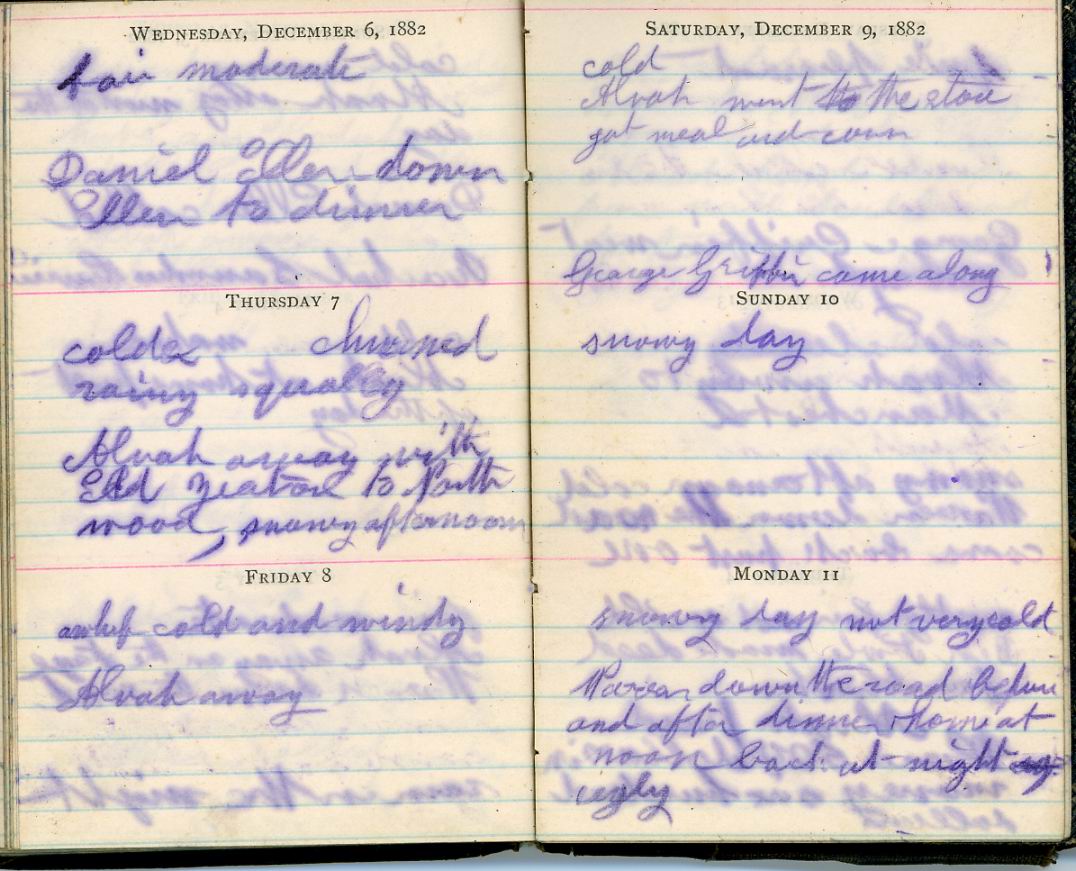 WEDNESDAY, DECEMBER 6, 1882
fair moderate
Daniel Ellen down
Ellen to dinner
THURSDAY 7
colder churned
rainy squally
Alvah away with
Eld Yeaton to North
wood, snowy afternoon
FRIDAY 8
cold and windy
Alvah away
SATURDAY, DECEMBER 9, 1882
cold
Alvah went to the store
got meal and corn
George Griffin came along
SUNDAY 10
snowy day
MONDAY 11
snowy day not very cold
Warren down the road before
and after dinner home at
noon back at night
ugly